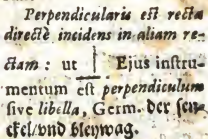 Perpendicularis eſt recta
directè incidens in aliam re-
ctam : ut Ejus inſtru-
mentum eſt perpendiculum
ſive libella, Germ. der ſen-
ckel/vnd bleywag.